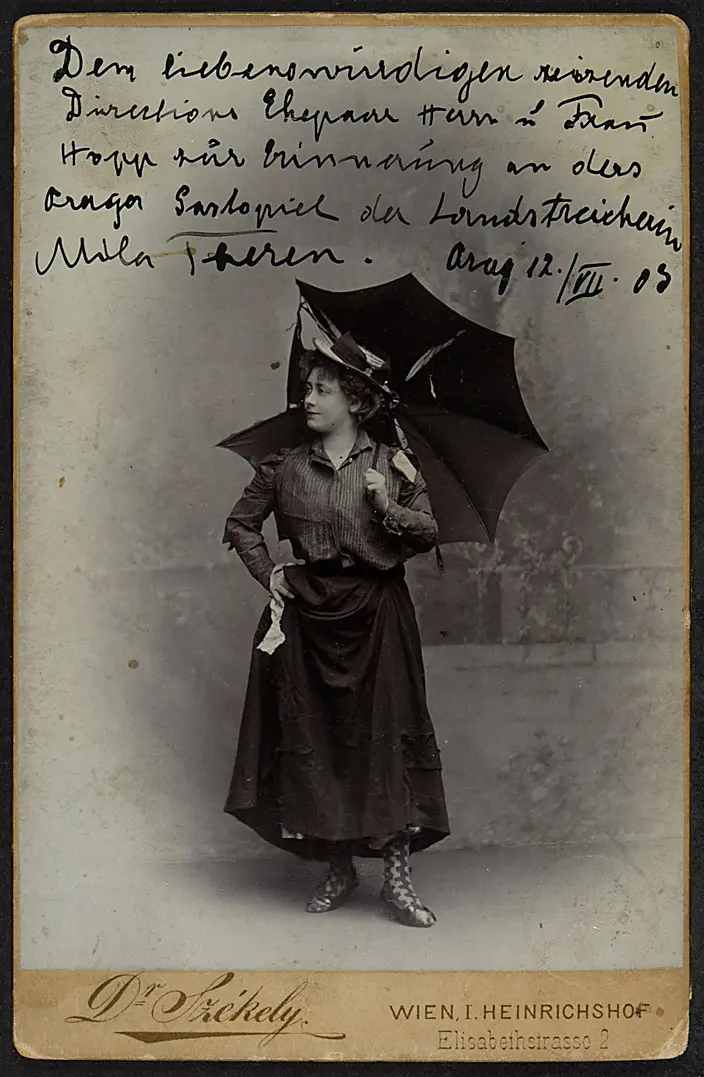 Dem liebenswürdigen reizenden
Directions Ehepaar Herrn u Frau
Hopp zur Erinnerung an das
Prager Gastspiel der Landstreicherin
Mila Theren. Prag 12./VII. 03
Dr Székely.
WIEN, I. HEINRICHSHOF
Elisabethstrasse 2